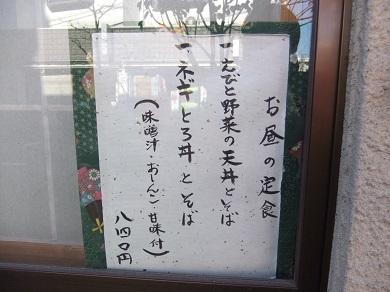 お昼の定食
一、えびと野菜の天丼とそば
一、ネギとろ丼とそば
(味噌汁・おしんこ・甘味付)
八四〇円